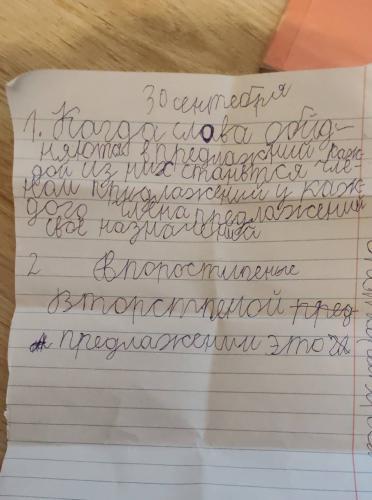 30 сентебря
1. Кагда слова обйд-
няются в предлажений каж-
дой из них станвтся чле-
нам придлажений у каж-
дого члена предлажений
своё назначений
2 Впоростипеные
Второстпеной пред
предлажении это чл